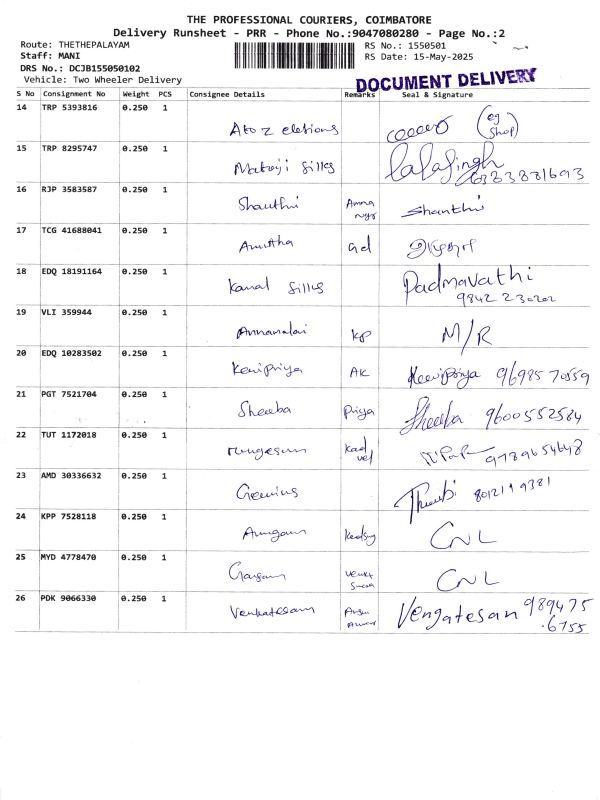 THE PROFESSIONAL COURIERS, COIMBATORE
Delivery Runsheet - PRR - Phone No.:9047080280 - Page No.:2
Route: THETHEPALAYAM
RS No.: 1550501
Staff: MANI
RS Date: 15-May-2025
DRS No.: DCJB155050102
Vehicle: Two Wheeler Delivery
DOCUMENT DELIVERY
S No Consignment No Weight PCS Consignee Details Remarks Seal & Signature
14 TRP 5393816 0.250 1
A to Z
15 TRP 8295747 0.250 1
Silks Lalasingh
16 RJP 3583587 0.250 1
Shanthi Shanthi
17 TCG 41688041 0.250 1
Amutha
18 EDQ 18191164 0.250 1
Kamal Silks Padmavathi
19 VLI 359944 0.250 1
Annamalai KP M/R
20 EDQ 10283502 0.250 1
Kavipriya AK Kavipriya
21 PGT 7521704 0.250 1
Sheeba Priya Sheeba 9600552584
22 TUT 1172018 0.250 1
Kad
vel 9789654648
23 AMD 30336632 0.250 1
8012119381
24 KPP 7528118 0.250 1
CNL
25 MYD 4778470 0.250 1
CNL
26 PDK 9066330 0.250 1
Venkatesam Vengatesan 989475
.6755